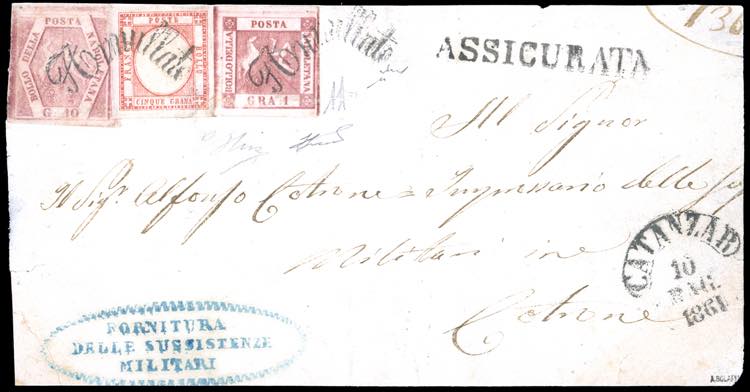 BOLLO DELLA POSTA NAPOLETANA
G. 10
Annullato
POSTE
FRANCO BOLLO
CINQUE GRANA
BOLLO DELLA POSTA NAPOLETANA
GRA 1
Annullato
ASSICURATA
136
AA
Al Signor
Il Sigr. Alfonso Cotrone = Impressario delle
Militari in
Cotrone
CATANZARO
10
MAG.
1861
FORNITURA
DELLE SUSSISTENZE
MILITARI
A.BOLAFFI